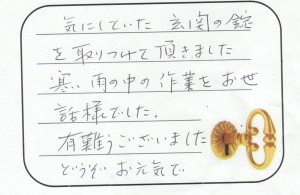 気にしていた 玄関の錠
を取りつけて頂きました
寒い雨の中の作業をお世
話様でした.
有難うございました
どうぞ お元気で